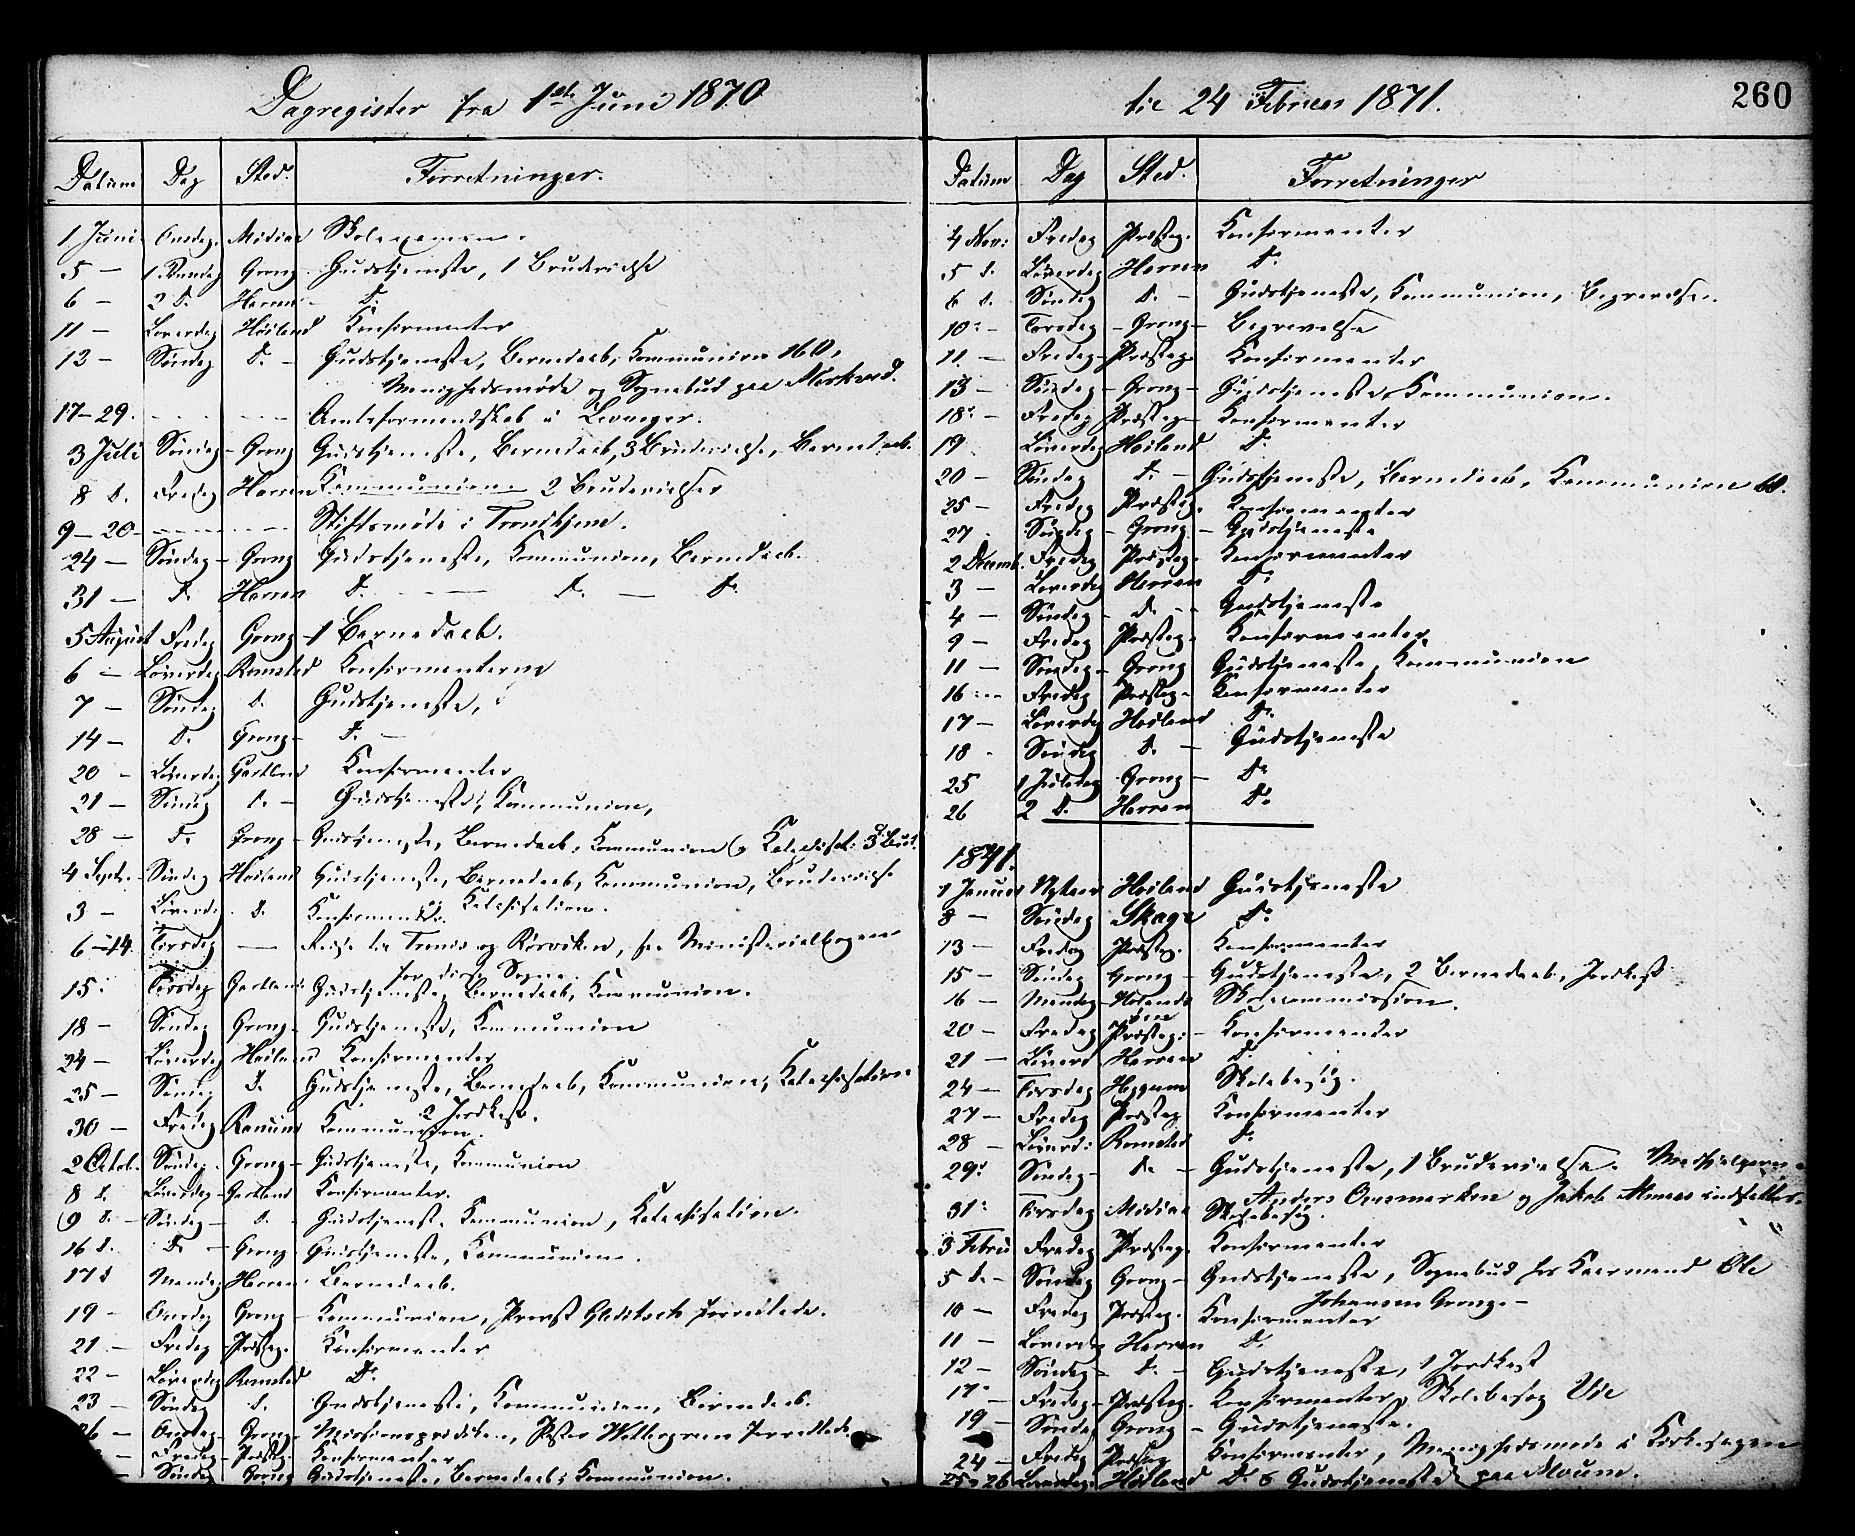 Dagregister fra 1ste Juni 1870
Datum Dag Sted. Forretninger.
1 Juni Onsdag. Mediaa Skoleexamen.
5 — 1. Pinsedag Grong Gudstjeneste, 1 Brudevielse
6 — 2 D. Harran — D.
11 — Løverdag Høiland Konfirmanter
12 — Søndag D. — Gudstjeneste, Barnedaab, Kommunion 160,
Menighedsmøde og Sognebud paa Mørkved.
17–29. Amtsformandskab i Levanger.
3 Juli Søndag — Grong Gudstjeneste, Barnedaab, 3 Brudevielse, Barnedaab.
8 D. Fredag Harran Kommunion 2 Brudevielser
9–20 Stiftsmøde i Trondhjem.
24 — Søndag — Grong Gudstjeneste, Kommunion, Barnedaab.
31 — D. Harran D. — D. — D.
5 August Fredag Grong — 1 Barnedaab.
6 — Løverdag Romstad Konfirmanterne
7 — Søndag D. Gudstjeneste,
14 — D. Grong — D. —
20 — Løverdag Gartland Konfirmanter
21 — Søndag D. — Gudstjeneste, Kommunion,
28 — D. Grong — Gudstjeneste, Barnedaab, Kommunion, Katechisat. 3 Brud.
4 Septr. Søndag Høiland Gudstjeneste, Barnedaab, Kommunion, Brudevielse
3 — Løverd. D. Konfirmand. og Katechisation.
6–14. Tirsdag — Reise til Trones og Rørviken, for Ministerialbogen
for disse Sogne.
15. Torsdag Gartland Gudstjeneste, Barnedaab, Kommunion.
18 — Søndag Grong — Gudstjeneste, Kommunion
24 — Løverdag Høiland Konfirmanter
25 — Søndag D. Gudstjeneste, Barnedaab, Kommunion, Katechisation
2 Jordkast.
30 — Fredag Ranum Kommunion.
2 Octob. Søndag. Grong — Gudstjeneste, Kommunion
8 D. Løverdag — Gartland Konfirmanter.
9 D. — Søndag — D. Gudstjeneste Kommunion, Katechisation.
16 D. D. — Grong Gudstjeneste, Kommunion.
17 D Mandag Harran Barnedaab.
19 — Onsdag Grong — Kommunion, Provst Gleditsch forrettede.
21 — Fredag Præsteg. Konfirmanter
22 — Løverdag Romstad D.
23 — Søndag D. Gudstjeneste, Kommunion, Barnedaab.
26 — Onsdag — Grong — Missionsprædiken, forrettede
— Fredag Præsteg. Konfirmanter
— Søndag Grong Gudstjeneste, Barnedaab, Kommunion.
til 24 Februar 1871. 260
Datum Dag Sted. Forretninger
4 Nov: Fredag Præsteg. Konfirmanter
5 D. Løverdag Harran D.
6 D. Søndag D. — Gudstjeneste, Kommunion, Begravelse.
10 — Torsdag — Grong — Begravelse
11. — Fredag — Præsteg. Konfirmanter
13 — Søndag — Grong — Gudstjeneste, Kommunion.
18 — Fredag Præsteg — Konfirmanter
19 Løverdag Høiland D.
20 — Søndag D. — Gudstjeneste, Barnedaab, Kommunion 60.
25 — Fredag Præsteg. Konfirmanter
27. Søndag — Grong — Gudstjeneste
2 Decemb. Fredag Præsteg. Konfirmanter
3 — Løverdag Harran D.
4 — Søndag — D. — Gudstjeneste
9 — Fredag Præsteg. Konfirmanter
11 — Søndag — Grong Gudstjeneste, Kommunion
16 — Fredag Præsteg. Konfirmanter
17 — Løverdag Høiland D.
18 — Søndag D. — Gudstjeneste
25 1 Juledag Grong — D.
26 2 D. Harran D.
1871.
1 Januar Nytaar Høiland Gudstjeneste
8 — Søndag Skage D.
13 — Fredag Præsteg. Konfirmanter
15 — Søndag Grong — Gudstjeneste, 2 Barnedaab, Jordkast
16 — Mandag — Skolecommission.
20 — Fredag Præsteg. — Konfirmanter
21 — Løverd Harran D.
24 — Tirsdag Heggum Skolebesøg.
27 — Fredag Præsteg Konfirmanter
28 — Løverd: Romstad D.
29. Søndag — D. — Gudstjeneste, 1 Brudevielse. Medhjælperne
Anders Omsmarken og Jakob indsattes.
31. Tirsdag Mediaa Skolebesøg.
3 Febru Fredag Præsteg. Konfirmanter
5 D. — Søndag Grong — Gudstjeneste, Sognebud hos Kaarmand Ole
Johansen Grong. —
10 — Fredag Præsteg. Konfirmanter
11 — Løverdag Harran D.
12 — Søndag — D. — Gudstjeneste, 1 Jordkast
17 — Fredag — Præsteg. Konfirmanter, Skolebesøg Vie
19 — Søndag Grong — Gudstjeneste.
24 — Fredag Præsteg Konfirmanter, Menighedsmøde i Kirkesagen
25 & 26 Løverdag. Høiland D. & Gudstjeneste paa Moum.